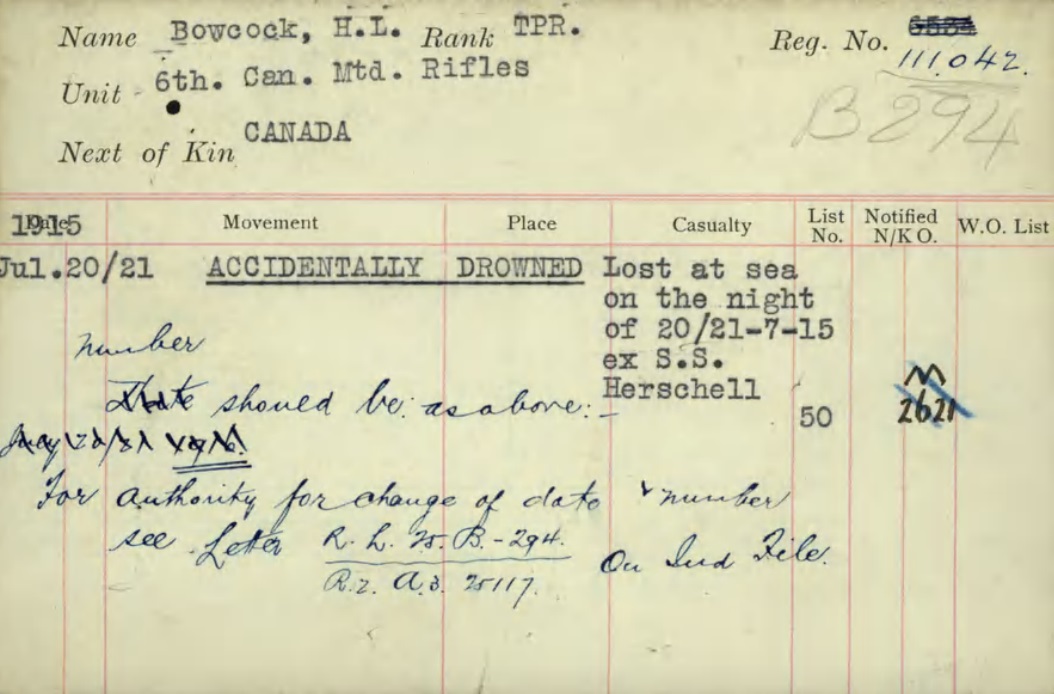 Name Bowcock, H.L. Rank TPR. Reg. No. 6534
111.042.
Unit 6th. Can. Mtd. Rifles
B294
Next of Kin CANADA
1915
Date Movement Place Casualty List No. Notified N/K O. W.O. List
Jul.20/21 ACCIDENTALLY DROWNED Lost at sea
on the night
of 20/21-7-15
ex S.S.
Herschell
number
Date should be as above:-
50 2621
For authority for change of date & number
see Letter R. L. 25. B.-294. On Ind File.
R.2. A.3. 25117.